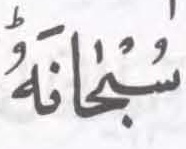 سُبْحٰانَهُ